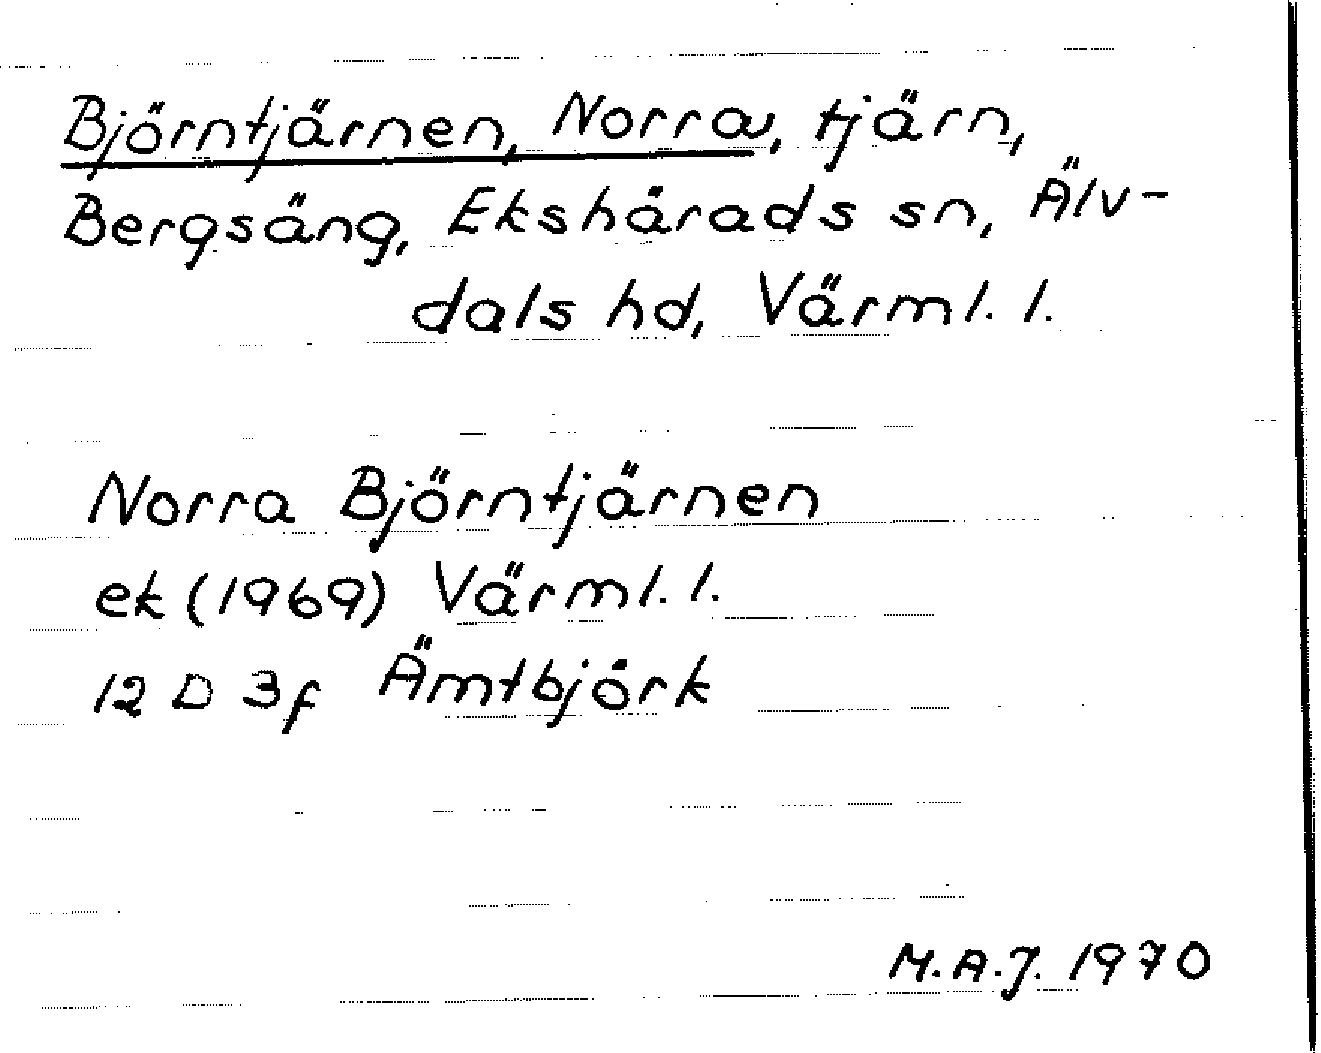 Björntjärnen, Norra, tjärn,
Bergsäng, Ekshärads sn, Älv-
dals hd, Värml. l.
Norra Björntjärnen
ek (1969) Värml. l.
12 D 3f Ämtbjörk
M.A.J. 1970